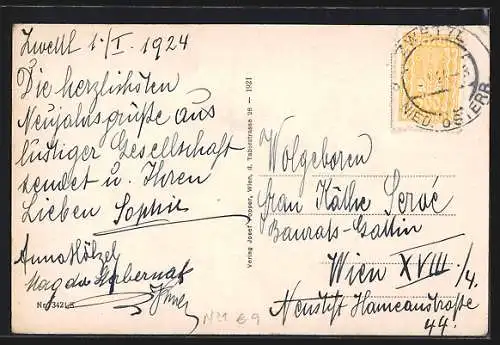 Zwettl 1./I. 1924
Die herzlichsten
Neujahrsgrüße aus
lustiger Gesellschaft
sendet u. Ihren
Lieben Sophie
Anna Hölzel
Magda
No 7342
Verlag Josef Popper, Wien, II. Taborstrasse 28 — 1921
ZWETTL
NIED. ÖSTERR
Wolgeboren
Frau Käthe
Baurats-Gattin
Wien XVIII./4.
Neustift Hameaustraße
44.
N21 €9